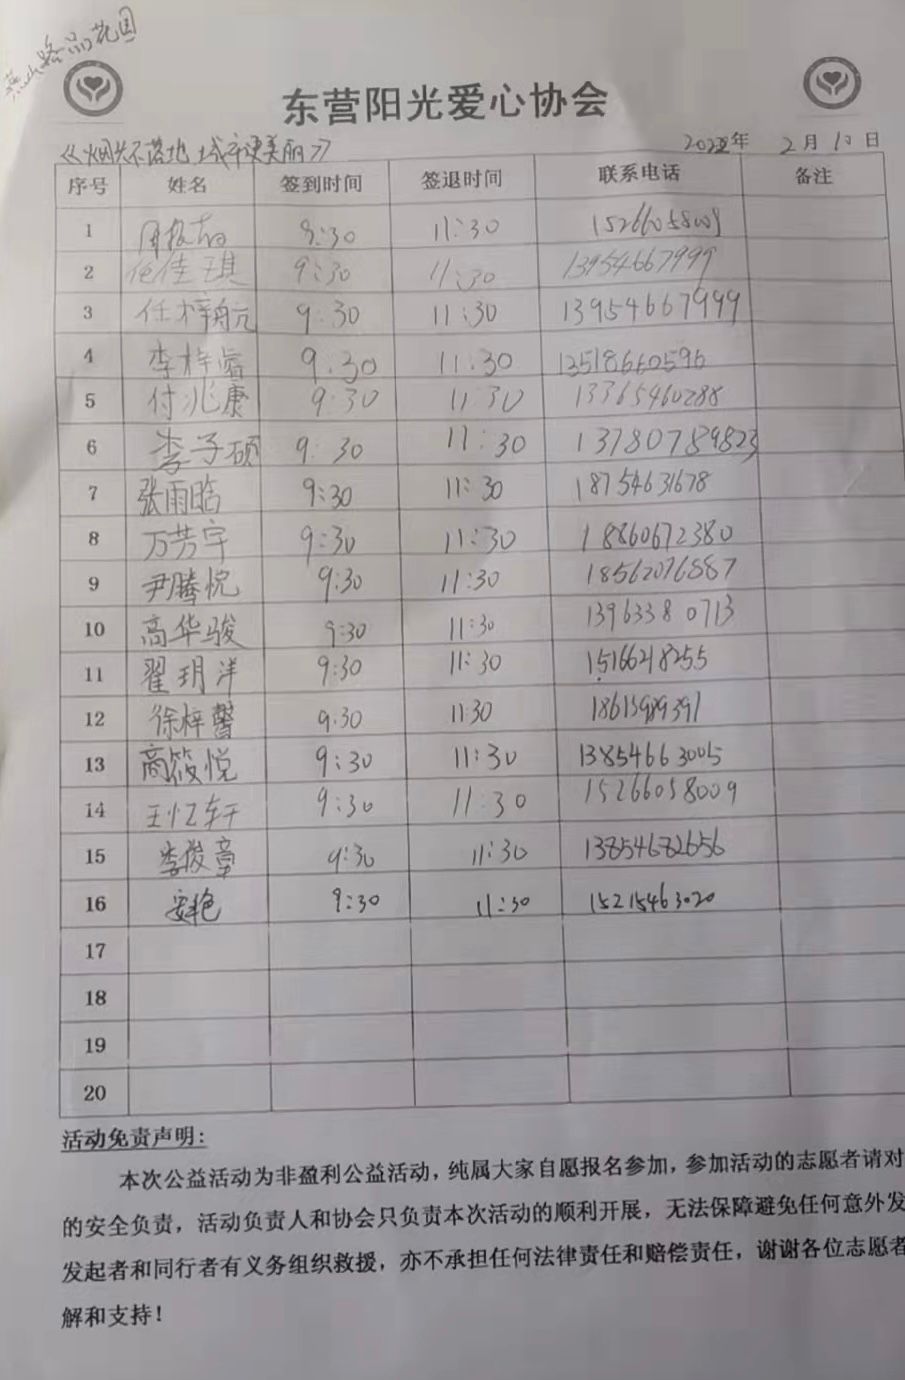 燕山路品花园
东营阳光爱心协会
《烟头不落地 城市更美丽》 2022年 2月10日
序号 姓名 签到时间 签退时间 联系电话 备注
1 9:30 11:30 15266058009
2 任佳琪 9:30 11:30 13954667999
3 任梓航 9:30 11:30 13954667999
4 李梓睿 9:30 11:30 13518660596
5 付兆康 9:30 11:30 13365460288
6 李子硕 9:30 11:30 13780789823
7 张雨晗 9:30 11:30 18754631678
8 万芳宇 9:30 11:30 18860672380
9 尹腾悦 9:30 11:30 18562076887
10 高华骏 9:30 11:30 13963380713
11 翟玥洋 9:30 11:30 15166218255
12 徐梓馨 9:30 11:30 18615989391
13 高筱悦 9:30 11:30 13854663005
14 王忆轩 9:30 11:30 15266058009
15 李俊章 9:30 11:30 13854682656
16 安艳 9:30 11:30 15215463020
17
18
19
20
活动免责声明：
本次公益活动为非盈利公益活动，纯属大家自愿报名参加，参加活动的志愿者请对
的安全负责，活动负责人和协会只负责本次活动的顺利开展，无法保障避免任何意外发
发起者和同行者有义务组织救援，亦不承担任何法律责任和赔偿责任，谢谢各位志愿者
解和支持！